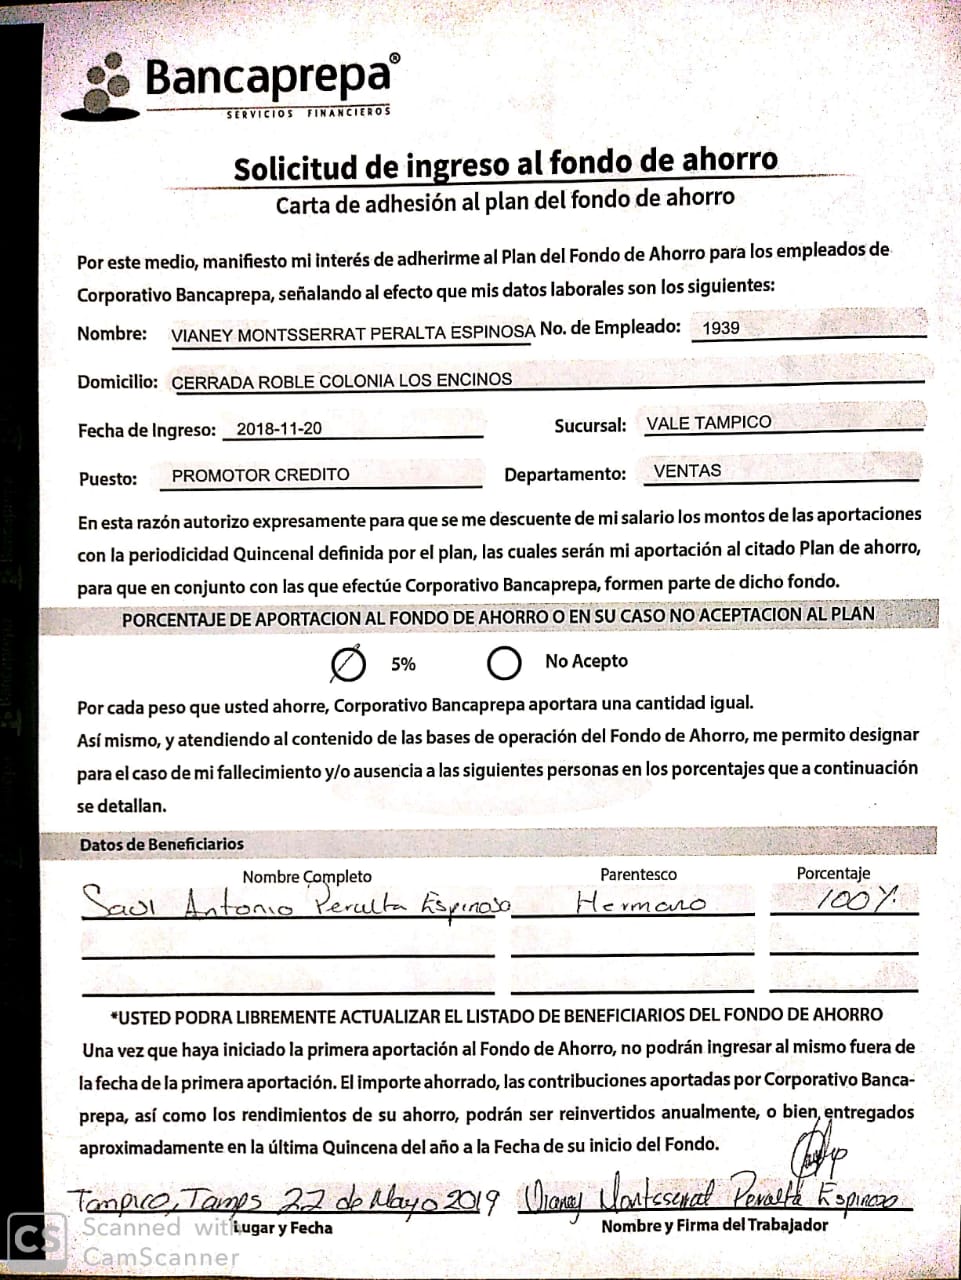 Bancaprepa®
SERVICIOS FINANCIEROS
Solicitud de ingreso al fondo de ahorro
Carta de adhesión al plan del fondo de ahorro
Por este medio, manifiesto mi interés de adherirme al Plan del Fondo de Ahorro para los empleados de
Corporativo Bancaprepa, señalando al efecto que mis datos laborales son los siguientes:
Nombre: VIANEY MONTSSERRAT PERALTA ESPINOSA No. de Empleado: 1939
Domicilio: CERRADA ROBLE COLONIA LOS ENCINOS
Fecha de Ingreso: 2018-11-20 Sucursal: VALE TAMPICO
Puesto: PROMOTOR CREDITO Departamento: VENTAS
En esta razón autorizo expresamente para que se me descuente de mi salario los montos de las aportaciones
con la periodicidad Quincenal definida por el plan, las cuales serán mi aportación al citado Plan de ahorro,
para que en conjunto con las que efectúe Corporativo Bancaprepa, formen parte de dicho fondo.
PORCENTAJE DE APORTACION AL FONDO DE AHORRO O EN SU CASO NO ACEPTACION AL PLAN
5% No Acepto
Por cada peso que usted ahorre, Corporativo Bancaprepa aportara una cantidad igual.
Así mismo, y atendiendo al contenido de las bases de operación del Fondo de Ahorro, me permito designar
para el caso de mi fallecimiento y/o ausencia a las siguientes personas en los porcentajes que a continuación
se detallan.
Datos de Beneficiarios
Nombre Completo Parentesco Porcentaje
Saul Antonio Peralta Espinosa Hermano 100%
*USTED PODRA LIBREMENTE ACTUALIZAR EL LISTADO DE BENEFICIARIOS DEL FONDO DE AHORRO
Una vez que haya iniciado la primera aportación al Fondo de Ahorro, no podrán ingresar al mismo fuera de
la fecha de la primera aportación. El importe ahorrado, las contribuciones aportadas por Corporativo Banca-
prepa, así como los rendimientos de su ahorro, podrán ser reinvertidos anualmente, o bien, entregados
aproximadamente en la última Quincena del año a la Fecha de su inicio del Fondo.
Tampico, Tamps 22 de Mayo 2019 Vianey Montsserrat Peralta Espinosa
Lugar y Fecha Nombre y Firma del Trabajador
CS Scanned with
CamScanner